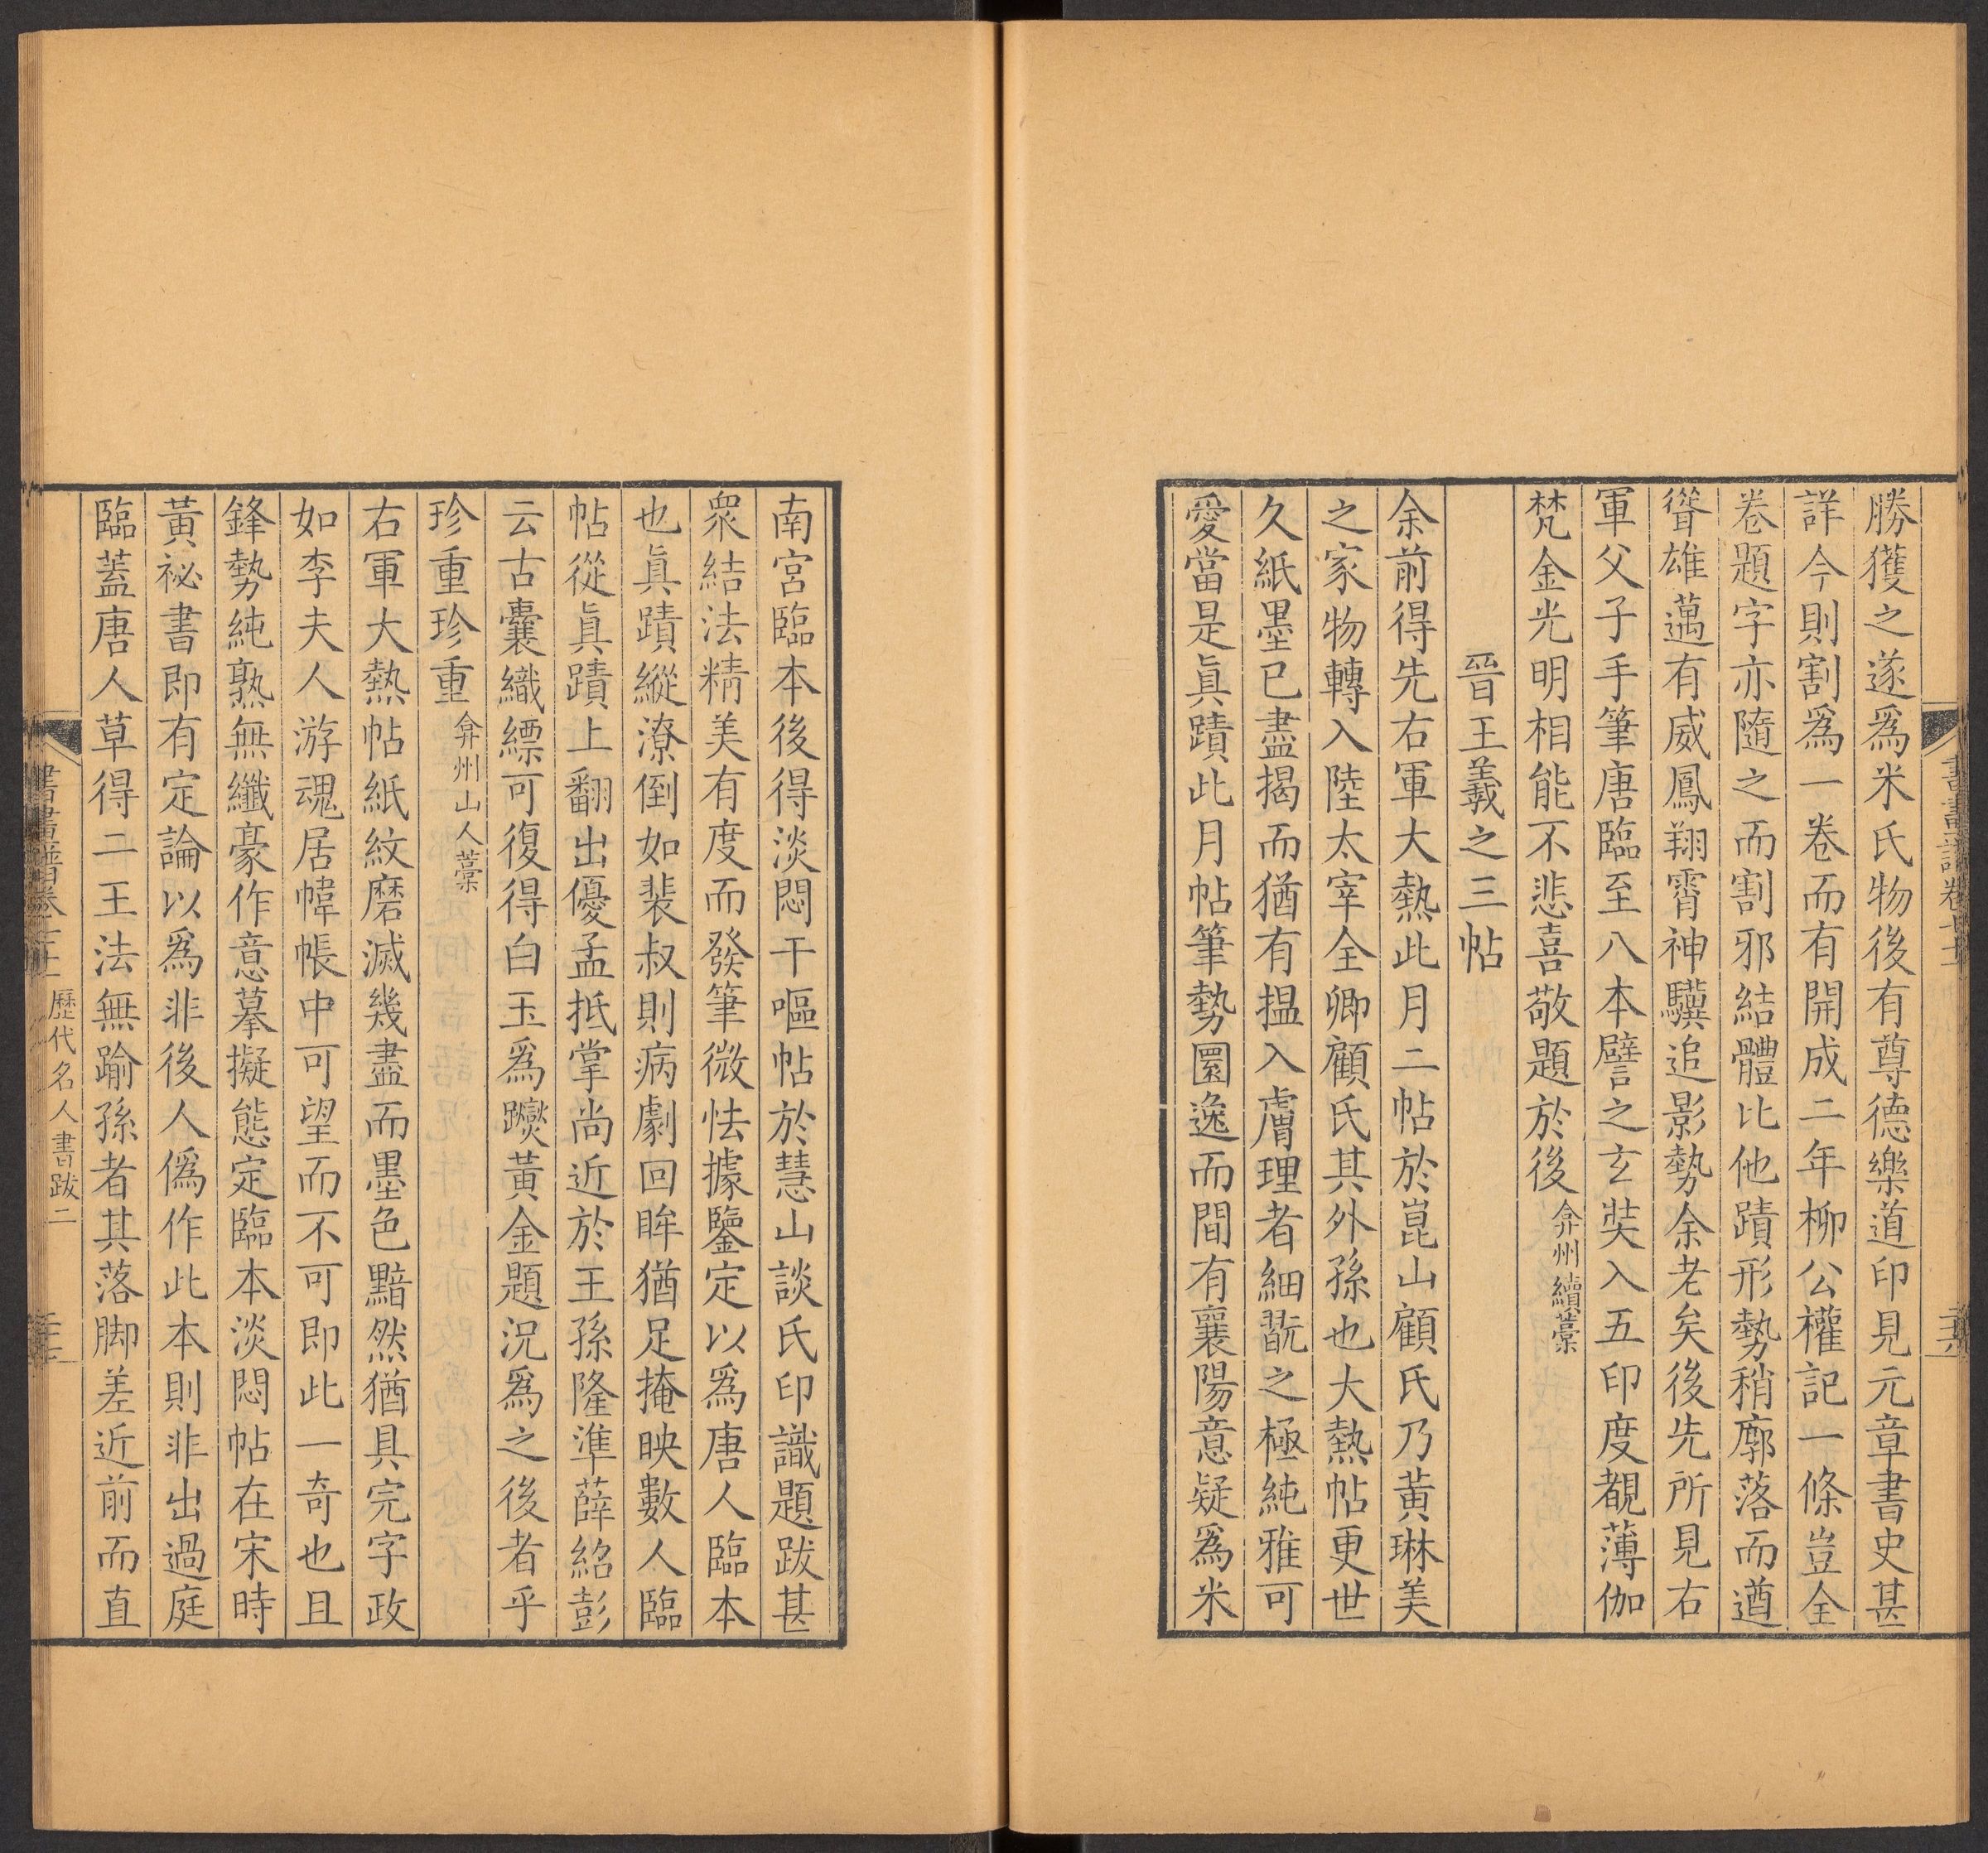 勝獲之遂爲米氏物後有尊德樂道印見元章書史甚
詳今則割爲一卷而有開成二年柳公權記一條豈全
卷題字亦隨之而割邪結體比他蹟形勢稍廓落而遒
聳雄邁有威鳳翔霄神驥追影勢余老矣後先所見右
軍父子手筆唐臨至八本譬之玄奘入五印度覩薄伽
梵金光明相能不悲喜敬題於後 弇州續藁
晉王羲之三帖
余前得先右軍大熱此月二帖於崑山顧氏乃黃琳美
之家物轉入陸太宰全卿顧氏其外孫也大熱帖更世
久紙墨已盡揭而猶有搵入膚理者細翫之極純雅可
愛當是眞蹟此月帖筆勢圜逸而間有襄陽意疑爲米
南宮臨本後得淡悶干嘔帖於慧山談氏印識題跋甚
衆結法精美有度而發筆微怯據鑒定以爲唐人臨本
也眞蹟縱潦倒如裴叔則病劇回眸猶足掩映數人臨
帖從眞蹟上翻出優孟抵掌尚近於王孫隆準薛紹彭
云古囊織縹可復得白玉爲躞黃金題況爲之後者乎
珍重珍重 弇州山人藁
右軍大熱帖紙紋磨滅幾盡而墨色黯然猶具完字政
如李夫人游魂居幃帳中可望而不可即此一奇也且
鋒勢純熟無纖豪作意摹擬態定臨本淡悶帖在宋時
黃祕書即有定論以爲非後人僞作此本則非出過庭
臨蓋唐人草得二王法無踰孫者其落脚差近前而直
書畫譜卷七十 歷代名人書跋二